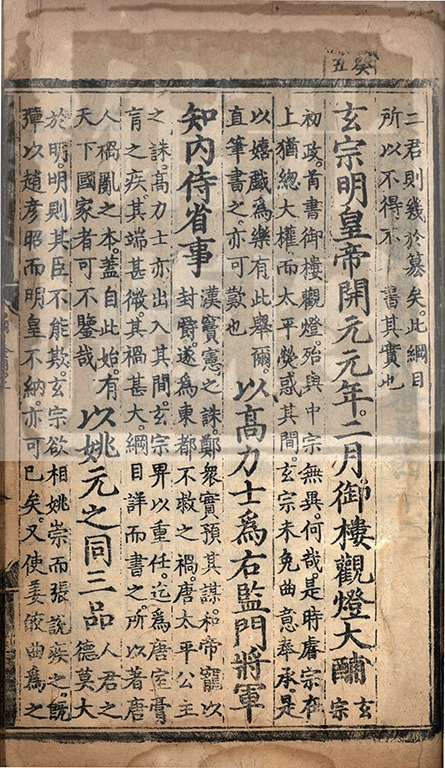 二君則幾於篡矣。此綱目
所以不得不書其實也
玄宗明皇帝開元元年。二月。御樓觀燈大酺
玄
宗
初政。首書御樓觀燈。殆與中宗無異。何哉。是時睿宗在
上猶總大權。而太平熒惑其間。玄宗未免曲意奉承。是
以嬉戲為樂。有此舉爾。
直筆書之。亦可歎也
以高力士爲右監門將軍
知內侍省事
漢竇憲之誅。鄭衆實預其謀。和帝寵以
封爵。遂為東都不救之禍。唐太平公主
之誅。高力士亦出入其間。玄宗畀以重任。迄為唐室膏
肓之疾。其端甚微。其禍甚大。綱目詳而書之。所以著唐
人禍亂之本。蓋自此始。有
天下國家者可不鑒哉
以姚元之同三品
人君之
德莫大
於明。明則其臣不能欺。玄宗欲相姚崇。而張說疾之。旣
彈以趙彥昭而明皇不納。亦可已矣。又使姜皎曲為之